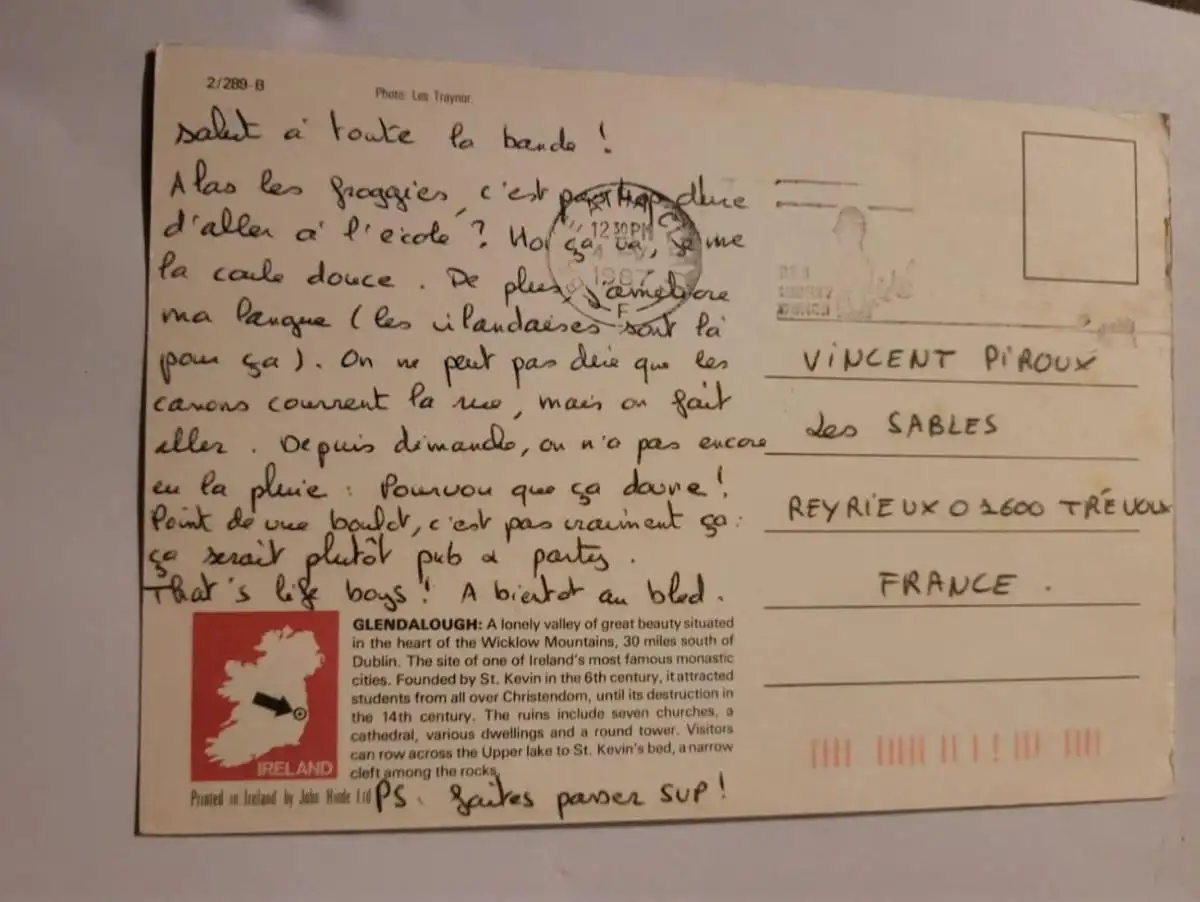 2/289-B
Photo: Les Traynor.
Salut à toute la bande !
Alas les froggies, c'est pas trop dure
d'aller à l'école ? Moi ça va, je me
la coule douce . De plus, j'améliore
ma langue ( les irlandaises sont là
pour ça ) . On ne peut pas dire que les
canons courrent la rue, mais on fait
aller . Depuis dimanche, on n'a pas encore
eu la pluie : Pourvou que ça doure !
Point de vue boulot, c'est pas vraiment ça :
ça serait plutôt pub & partys .
That's life boys ! A bientot au bled .
12 30 PM
1987
F
VINCENT PIROUX
Les SABLES
REYRIEUX 01600 TRÉVOUX
FRANCE .
IRELAND
GLENDALOUGH: A lonely valley of great beauty situated
in the heart of the Wicklow Mountains, 30 miles south of
Dublin. The site of one of Ireland's most famous monastic
cities. Founded by St. Kevin in the 6th century, it attracted
students from all over Christendom, until its destruction in
the 14th century. The ruins include seven churches, a
cathedral, various dwellings and a round tower. Visitors
can row across the Upper lake to St. Kevin's bed, a narrow
cleft among the rocks.
Printed in Ireland by John Hinde Ltd
PS : faites passer SUP !